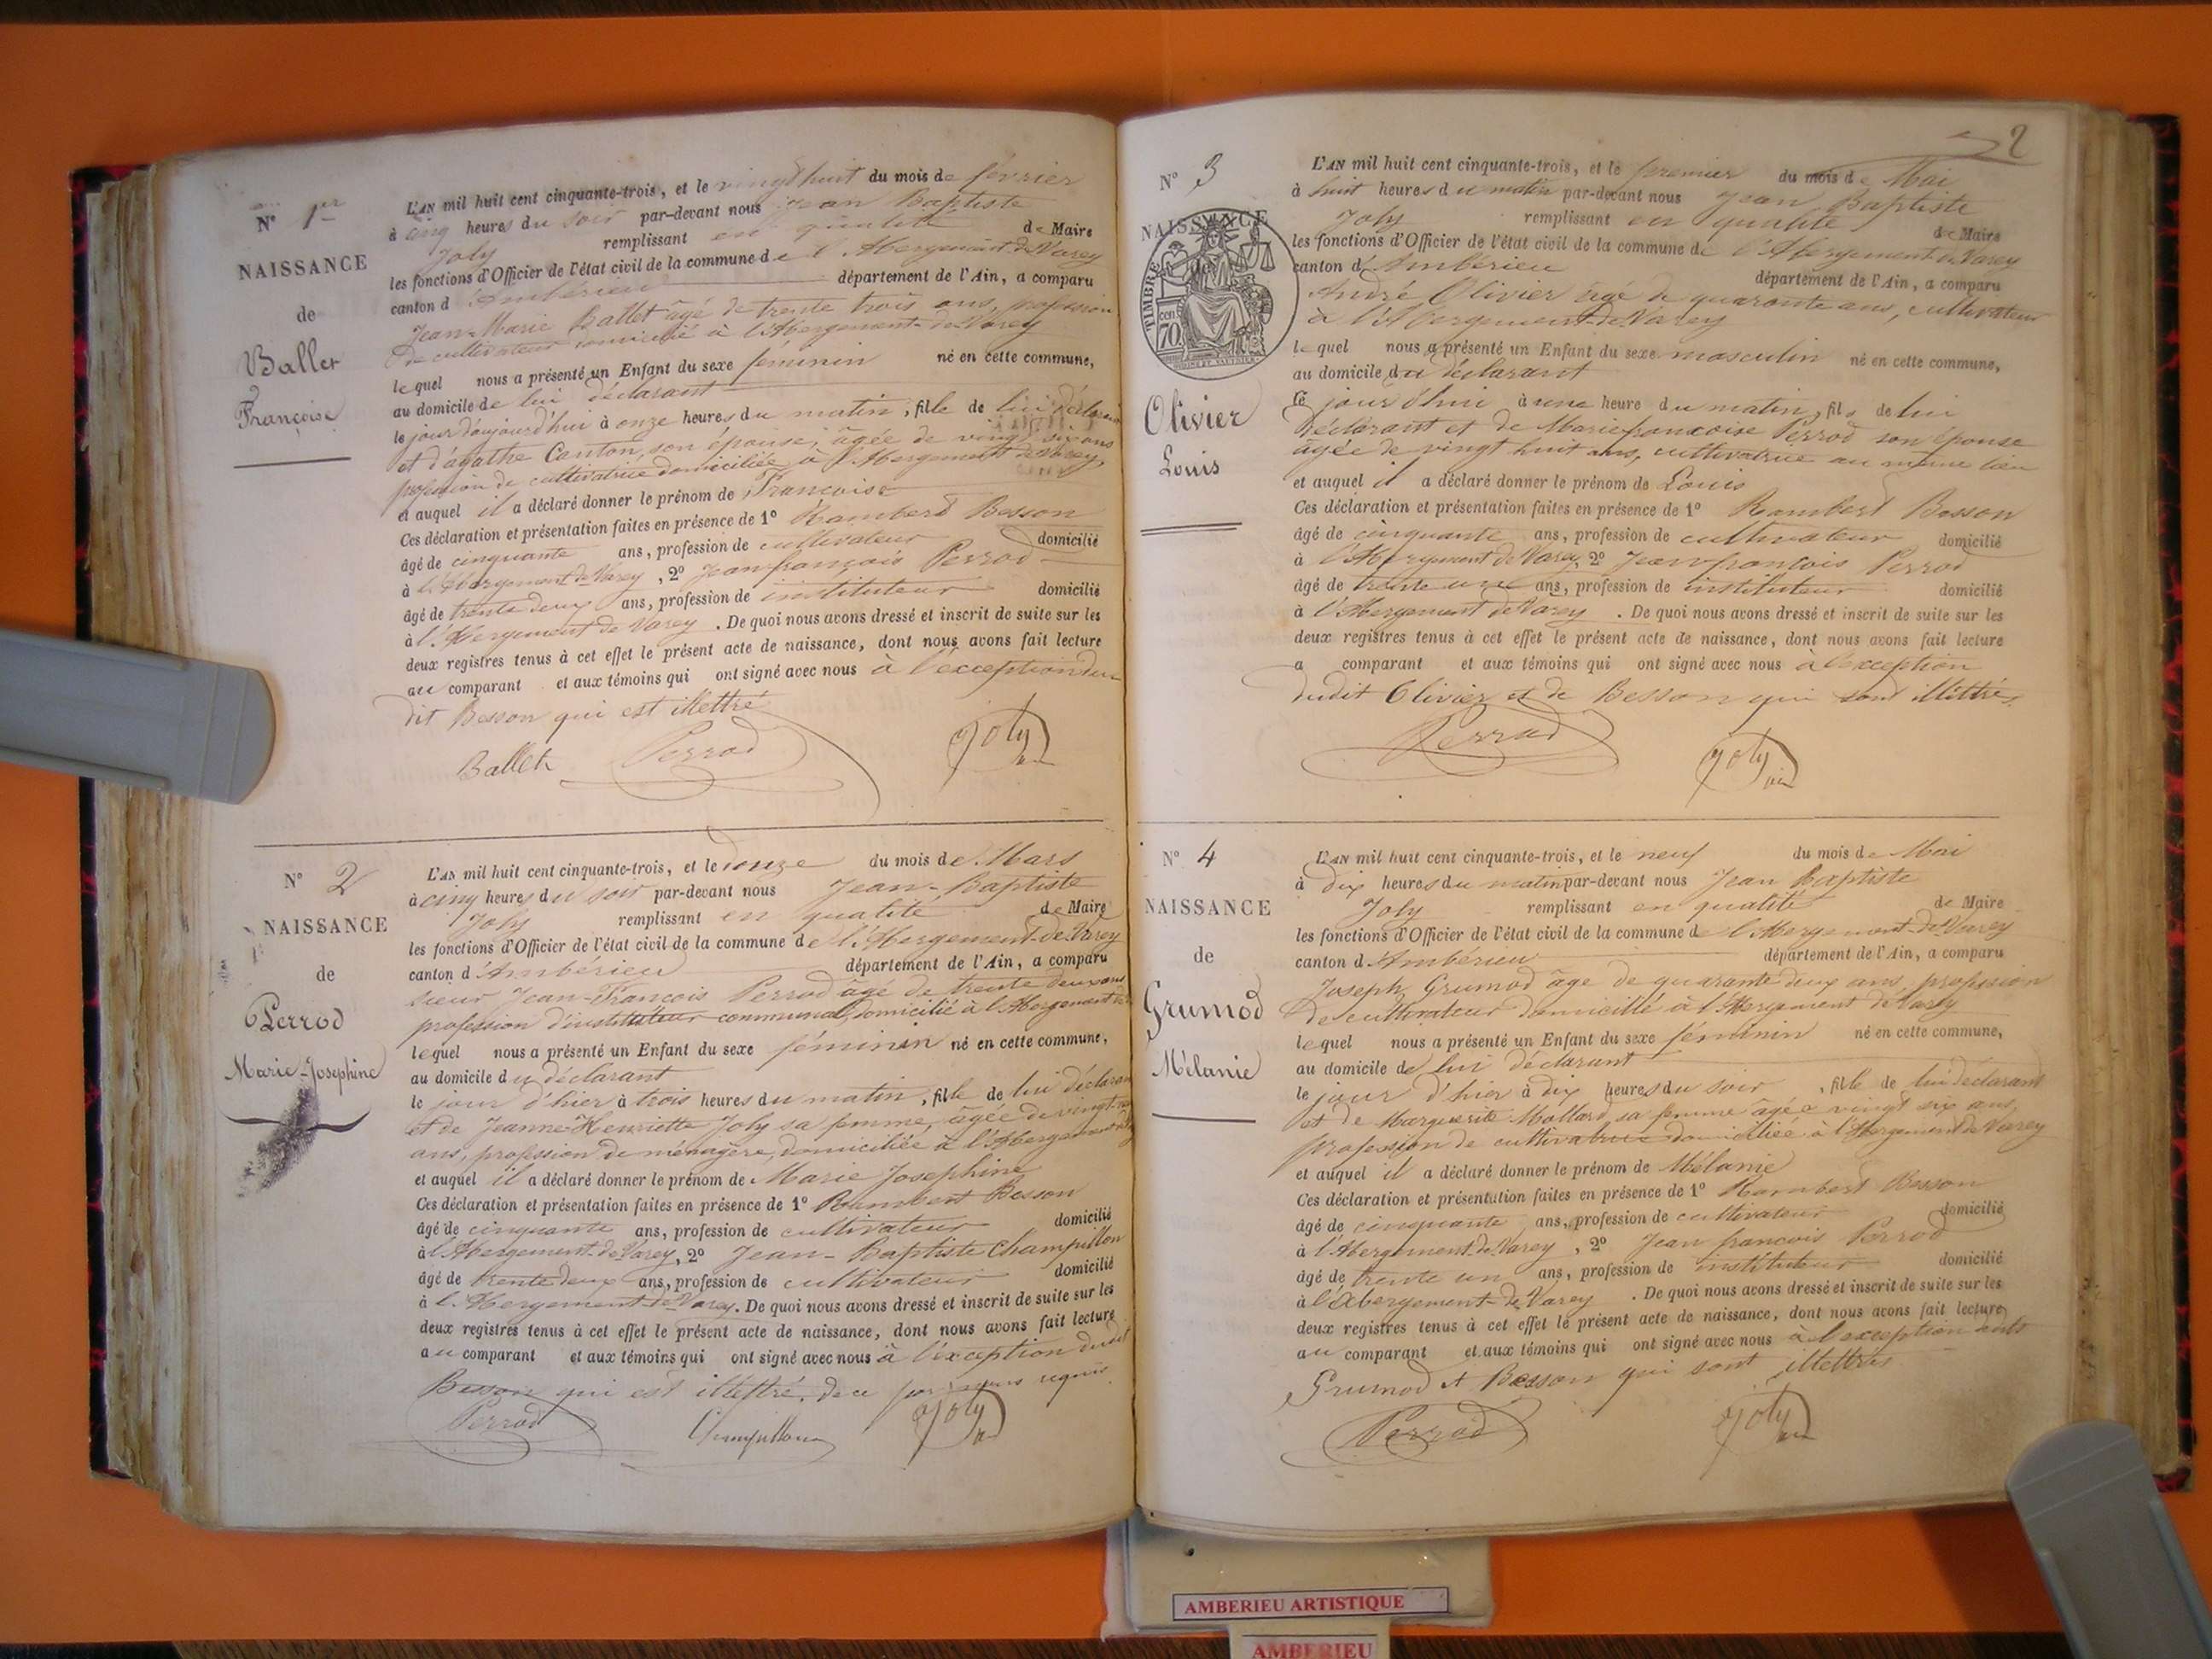 N° 1er
NAISSANCE
de
Ballet
Françoise
L'AN mil huit cent cinquante-trois, et le vingt huit du mois de février
à cinq heures du soir par-devant nous Jean Baptiste
Joly remplissant en qualité de Maire
les fonctions d'Officier de l'état civil de la commune de l'Abergement de Varey
canton d'Ambérieu département de l'Ain, a comparu
Jean-Marie Ballet âgé de trente trois ans, profession
de cultivateur domicilié à l'Abergement-de-Varey
lequel nous a présenté un Enfant du sexe féminin né en cette commune,
au domicile de lui déclarant
le jour d'aujourd'hui à onze heures du matin, fille de lui déclarant
et d'agathe Canton, son épouse, âgée de vingt six ans
profession de cultivatrice domiciliée à l'Abergement de Varey
et auquel il a déclaré donner le prénom de Françoise
Ces déclaration et présentation faites en présence de 1° Rambert Besson
âgé de cinquante ans, profession de cultivateur domicilié
à l'Abergement de Varey, 2° Jean françois Perrod
âgé de trente deux ans, profession de instituteur domicilié
à l'Abergement de Varey. De quoi nous avons dressé et inscrit de suite sur les
deux registres tenus à cet effet le présent acte de naissance, dont nous avons fait lecture
au comparant et aux témoins qui ont signé avec nous à l'exception du
dit Besson qui est illettré
Ballet Perrod Joly
N° 2
NAISSANCE
de
Perrod
Marie-Josephine
L'AN mil huit cent cinquante-trois, et le douze du mois de Mars
à cinq heures du soir par-devant nous Jean-Baptiste
Joly remplissant en qualité de Maire
les fonctions d'Officier de l'état civil de la commune de l'Abergement-de-Varey
canton d'Ambérieu département de l'Ain, a comparu
sieur Jean-François Perrod âgé de trente deux ans
profession d'instituteur communal, domicilié à l'Abergement de
lequel nous a présenté un Enfant du sexe féminin né en cette commune,
au domicile du déclarant
le jour d'hier à trois heures du matin, fille de lui déclarant
et de Jeanne-Henriette Joly sa femme, âgée de vingt
ans, profession de ménagère, domiciliée à l'Abergement
et auquel il a déclaré donner le prénom de Marie Josephine
Ces déclaration et présentation faites en présence de 1° Rambert Besson
âgé de cinquante ans, profession de cultivateur domicilié
à l'Abergement-de-Varey, 2° Jean-Baptiste Champillon
âgé de trente deux ans, profession de cultivateur domicilié
à l'Abergement-de-Varey. De quoi nous avons dressé et inscrit de suite sur les
deux registres tenus à cet effet le présent acte de naissance, dont nous avons fait lecture
au comparant et aux témoins qui ont signé avec nous à l'exception dudit
Besson qui est illettré, de ce par nous requis.
Perrod Champillon Joly
2
N° 3
NAISSANCE
de
TIMBRE
70 cent
Olivier
Louis
L'AN mil huit cent cinquante-trois, et le premier du mois de Mai
à huit heures du matin par-devant nous Jean Baptiste
Joly remplissant en qualité de Maire
les fonctions d'Officier de l'état civil de la commune de l'Abergement de Varey
canton d'Ambérieu département de l'Ain, a comparu
André Olivier âgé de quarante ans, cultivateur
à l'Abergement-de-Varey
lequel nous a présenté un Enfant du sexe masculin né en cette commune,
au domicile du déclarant
Ce jour d'hui à une heure du matin, fils de lui
déclarant et de Mariefrancoise Perrod son épouse
âgée de vingt huit ans, cultivatrice au même lieu
et auquel il a déclaré donner le prénom de Louis
Ces déclaration et présentation faites en présence de 1° Rambert Besson
âgé de cinquante ans, profession de cultivateur domicilié
à l'Abergement de Varey, 2° Jean francois Perrod
âgé de trente un ans, profession de instituteur domicilié
à l'Abergement de Varey. De quoi nous avons dressé et inscrit de suite sur les
deux registres tenus à cet effet le présent acte de naissance, dont nous avons fait lecture
a comparant et aux témoins qui ont signé avec nous à l'exception
dudit Olivier et de Besson qui sont illittrés
Perrod Joly
N° 4
NAISSANCE
de
Grumod
Mélanie
L'AN mil huit cent cinquante-trois, et le neuf du mois de Mai
à dix heures du matin par-devant nous Jean Baptiste
Joly remplissant en qualité de Maire
les fonctions d'Officier de l'état civil de la commune de l'Abergement-de-Varey
canton d'Ambérieu département de l'Ain, a comparu
Joseph Grumod âgé de quarante deux ans, profession
de cultivateur domicilié à l'Abergement de Varey
lequel nous a présenté un Enfant du sexe féminin né en cette commune,
au domicile de lui déclarant
le jour d'hier à dix heures du soir, fille de lui déclarant
et de Marguerite Mollard sa femme âgée vingt six ans,
profession de cultivatrice domiciliée à l'Abergement de Varey
et auquel il a déclaré donner le prénom de Mélanie
Ces déclaration et présentation faites en présence de 1° Rambert Besson
âgé de cinquante ans, profession de cultivateur domicilié
à l'Abergement-de-Varey, 2° Jean francois Perrod
âgé de trente un ans, profession de instituteur domicilié
à l'Abergement-de-Varey. De quoi nous avons dressé et inscrit de suite sur les
deux registres tenus à cet effet le présent acte de naissance, dont nous avons fait lecture
au comparant et aux témoins qui ont signé avec nous à l'exception
Grumod et Besson qui sont illettrés
Perrod Joly
AMBERIEU ARTISTIQUE
AMBERIEU